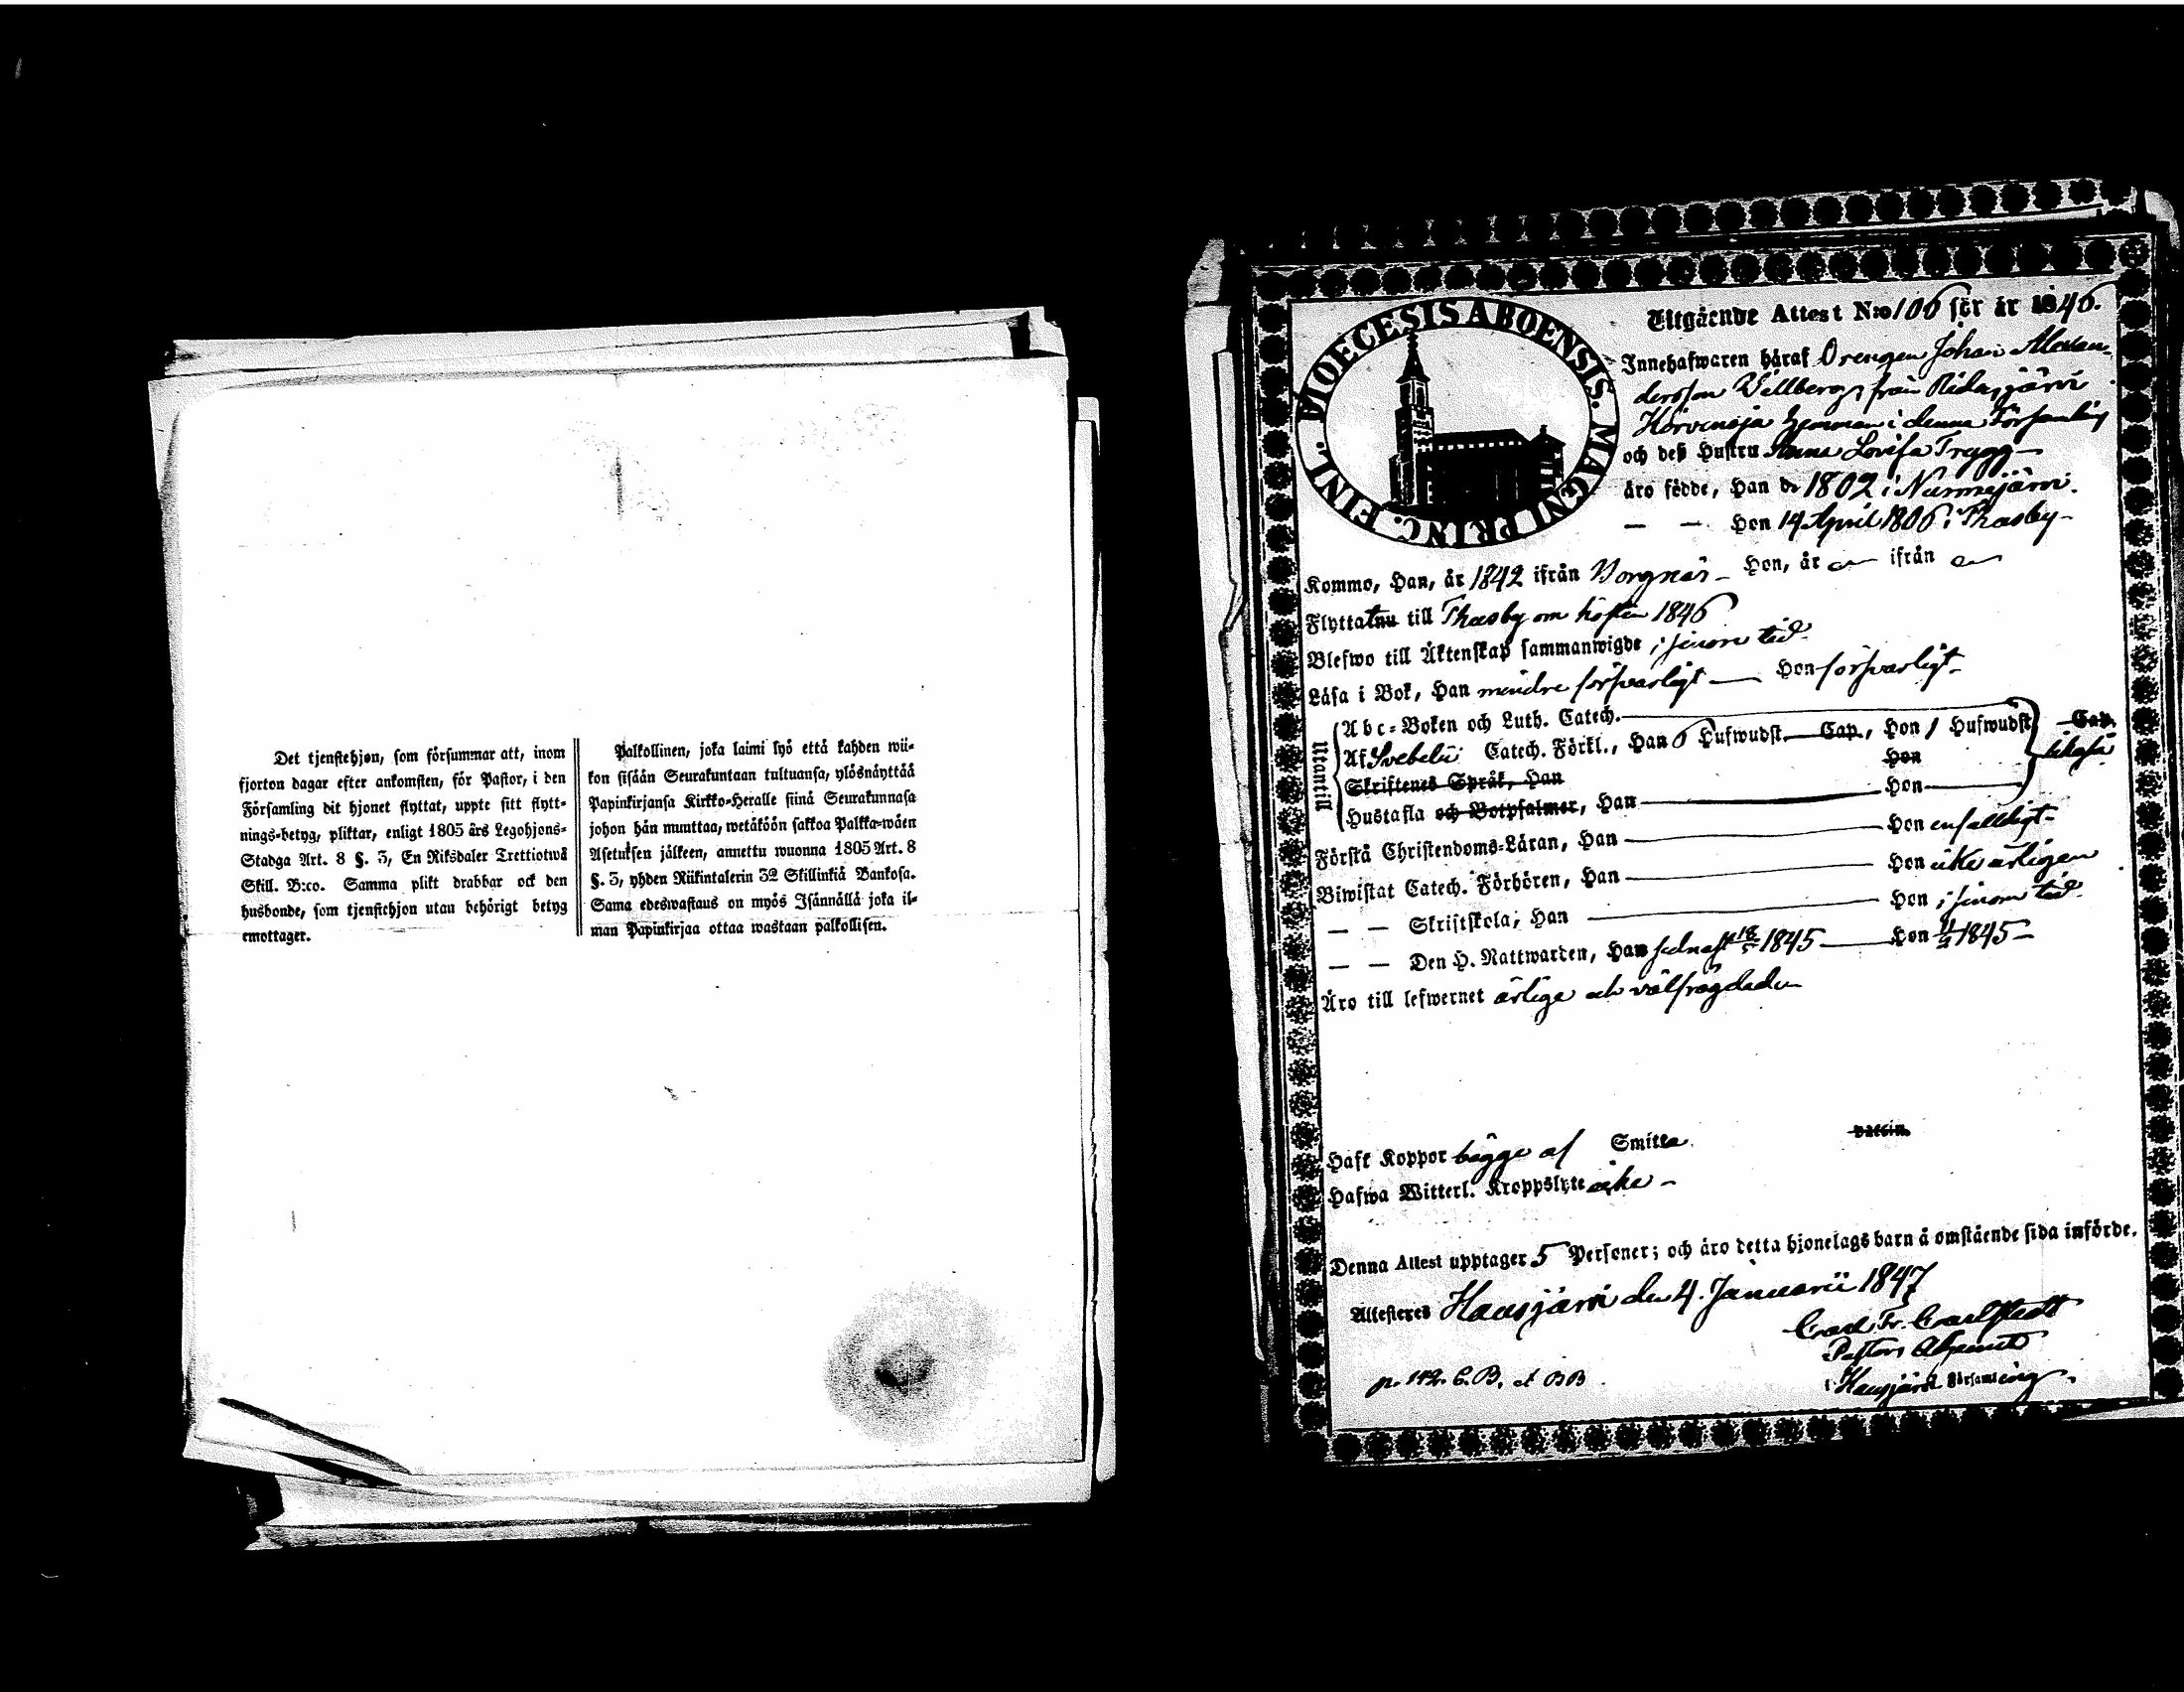 Det tjenstehjon, som försummar att, inom
fjorton dagar efter ankomsten, för Pastor, i den
Församling dit hjonet flyttat, uppte sitt flytt-
nings-betyg, pliktar, enligt 1805 års Legohjons-
Stadga Art. 8 §. 3, En Riksdaler Trettiotwå
Skill. B:co. Samma plikt drabbar ock den
husbonde, som tjenstehjon utan behörigt betyg
emottager.
Palkollinen, joka laimi lyö että kahden wii-
kon sisään Seurakuntaan tultuansa, ylösnäyttää
Papinkirjansa Kirkko-Heralle siinä Seurakunnasa
johon hän muuttaa, wetäköön sakkoa Palkka-wäen
Asetuksen jälkeen, annettu wuonna 1805 Art. 8
§. 3, yhden Riikintalerin 32 Skillinkiä Bankosa.
Sama edeswastaus on myös Isännällä joka il-
man Papinkirjaa ottaa wastaan palkollisen.
DIOECESIS ABOENSIS. MAGNI PRINC. FINL.
Utgående Attest N:o 106 för år 1846.
Innehafwaren häraf Drengen Johan Alexan-
dersson Wellberg från Ridasjärvi
i denna Församling
och deß Hustru Anna Lovisa Trygg
äro födde, Han d. 1802 i Nurmejärvi.
— — Hon 14 April 1806 i Thusby
Kommo, Han, år 1842 ifrån Borgnäs Hon, år ifrån
Flyttat till Thusby om hösten 1846
Blefwo till Äktenskap sammanwigde i sinom tid
Läsa i Bok, Han mindre försvarligt — Hon försvarligt
Utantill
Abc-Boken och Luth. Catech.
Af Svebelii Catech. Förkl., Han 6 Hufwudst. Cap., Hon 1 Hufwudst. Cap.
Skriftenes Språk, Han Hon
Hustafla och Botpsalmer, Han — Hon —
Förstå Christendoms-Läran, Han — Hon enfalldigt
Biwistat Catech. Förhören, Han — Hon icke årligen
— — Skriftskola, Han — Hon i sinom tid
— — Den H. Nattwarden, Han sednast 18/5 1845 — Hon 1845
Äro till lefwernet ärlige och välfrägdade
Haft Koppor bägge af Smitta vaccin.
Hafwa Witterl. Kroppslyte icke
Denna Attest upptager 5 Personer; och äro detta hjonelags barn å omstående sida införde.
Attesteres Hausjärvi den 4. Januarii 1847
Carl Fr. Carlstedt
Pastors
i Hausjärvi Församling
p. 142 C.B. et BB